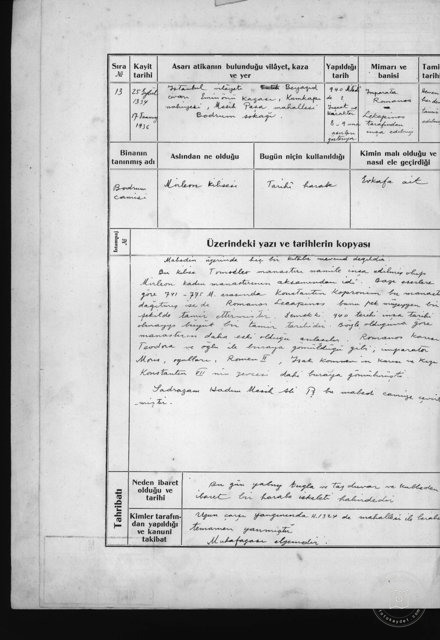 Sıra № Kayit tarihi Asarı atikanın bulunduğu vilâyet, kaza ve yer Yapıldığı tarih Mimarı ve banisi Tami tari
13 25 Eylûl 1334 İstanbul vilâyeti Beyazıd 940 İmparator
civarı Eminönü Kazası, Kumkapı Romanos
17 Temmuz 1936 nahiyesi, Mesih Paşa mahallesi Lecapenos
Bodrum sokağı. 8-9 uncu tarafından
inşa edilmiş
Binanın tanınmış adı Aslından ne olduğu Bugün niçin kullanıldığı Kimin malı olduğu ve nasıl ele geçirdiği
Bodrum camisi Mirleon kilisesi Tarihî harabe Evkafa ait
№ Üzerindeki yazı ve tarihlerin kopyası
Mabedin üzerinde hiç bir kitabe mevcud değildir.
Bu kilise manastırı namile inşa edilmiş olup
Mirleon kadın manastırının aksamından idi. Bazı eserlere
göre 741-775 M. esnasında Konstantin Kopronim bu manastırı
dağıtmış ise de Romanos Lecapenos bunu pek
şekilde tamir ettirmiştir. Demek ki 940 tarihi inşa tarihi
olmayıp büyük bir tamir tarihidir. Böyle olduğuna göre
manastırın daha eski olduğu anlaşılır. Romanos karısı
Teodora ve oğlu ile buraya gömüldüğü gibi, imparator
oğulları, Romen II, İzak Komnen in karısı ve kızı
Konstantin VII nin zevcesi dahi buraya gömülmüştü
Sadrazam Hadım Mesih Ali Pş bu mabedi camiye çevir
-miştir.
Tahribatı
Neden ibaret olduğu ve tarihi Bu gün yalnız tuğla ve taş duvar ve kubbeden
ibaret bir harabe iskeleti halindedir
Kimler tarafından yapıldığı ve kanuni takibat Uzun çarşı yangınında H. 1324 de mahallesi ile beraber
tamamen yanmıştır
Muhafazası elzemdir.